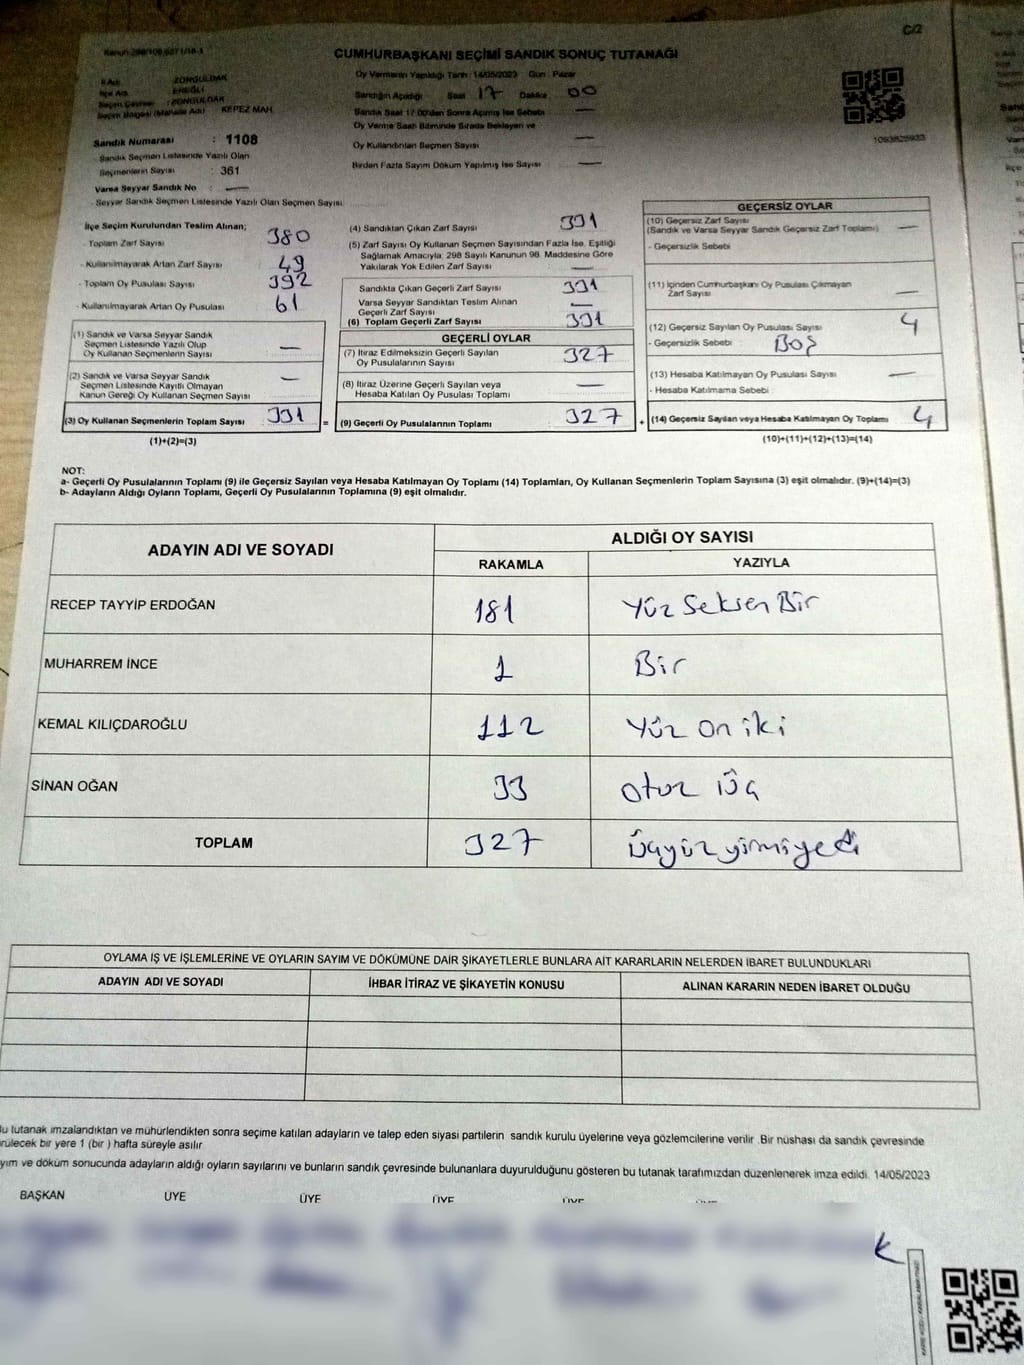 C/2
CUMHURBAŞKANI SEÇİMİ SANDIK SONUÇ TUTANAĞI
İli Adı : ZONGULDAK
İlçe Adı : EREĞLİ
Seçim Çevresi : ZONGULDAK
Seçim Bölgesi (Mahalle Adı) : KEPEZ MAH.
Sandık Numarası : 1108
Sandık Seçmen Listesinde Yazılı Olan
Seçmenlerin Sayısı : 361
Varsa Seyyar Sandık No : —
- Seyyar Sandık Seçmen Listesinde Yazılı Olan Seçmen Sayısı
Oy Vermenin Yapıldığı Tarih : 14/05/2023 Gün : Pazar
Sandığın Açıldığı Saat 17 Dakika 00
Sandık Saat 17:00'den Sonra Açılmış İse Sebebi —
Oy Verme Saati Bitiminde Sırada Bekleyen ve
Oy Kullandırılan Seçmen Sayısı —
Birden Fazla Sayım Döküm Yapılmış İse Sayısı —
1093825933
İlçe Seçim Kurulundan Teslim Alınan;
- Toplam Zarf Sayısı 380
- Kullanılmayarak Artan Zarf Sayısı 49
- Toplam Oy Pusulası Sayısı 392
- Kullanılmayarak Artan Oy Pusulası 61
(1) Sandık ve Varsa Seyyar Sandık
Seçmen Listesinde Yazılı Olup
Oy Kullanan Seçmenlerin Sayısı —
(2) Sandık ve Varsa Seyyar Sandık
Seçmen Listesinde Kayıtlı Olmayan
Kanun Gereği Oy Kullanan Seçmen Sayısı —
(3) Oy Kullanan Seçmenlerin Toplam Sayısı 331 =
(1)+(2)=(3)
(4) Sandıktan Çıkan Zarf Sayısı 331
(5) Zarf Sayısı Oy Kullanan Seçmen Sayısından Fazla İse, Eşitliği
Sağlamak Amacıyla; 298 Sayılı Kanunun 98. Maddesine Göre
Yakılarak Yok Edilen Zarf Sayısı —
Sandıkta Çıkan Geçerli Zarf Sayısı 331
Varsa Seyyar Sandıktan Teslim Alınan
Geçerli Zarf Sayısı —
(6) Toplam Geçerli Zarf Sayısı 331
GEÇERLİ OYLAR
(7) İtiraz Edilmeksizin Geçerli Sayılan
Oy Pusulalarının Sayısı 327
(8) İtiraz Üzerine Geçerli Sayılan veya
Hesaba Katılan Oy Pusulası Toplamı —
(9) Geçerli Oy Pusulalarının Toplamı 327 +
GEÇERSİZ OYLAR
(10) Geçersiz Zarf Sayısı
(Sandık ve Varsa Seyyar Sandık Geçersiz Zarf Toplamı) —
- Geçersizlik Sebebi
(11) İçinden Cumhurbaşkanı Oy Pusulası Çıkmayan
Zarf Sayısı —
(12) Geçersiz Sayılan Oy Pusulası Sayısı 4
- Geçersizlik Sebebi BOŞ
(13) Hesaba Katılmayan Oy Pusulası Sayısı —
- Hesaba Katılmama Sebebi
(14) Geçersiz Sayılan veya Hesaba Katılmayan Oy Toplamı 4
(10)+(11)+(12)+(13)=(14)
NOT:
a- Geçerli Oy Pusulalarının Toplamı (9) ile Geçersiz Sayılan veya Hesaba Katılmayan Oy Toplamı (14) Toplamları, Oy Kullanan Seçmenlerin Toplam Sayısına (3) eşit olmalıdır. (9)+(14)=(3)
b- Adayların Aldığı Oyların Toplamı, Geçerli Oy Pusulalarının Toplamına (9) eşit olmalıdır.
ADAYIN ADI VE SOYADI ALDIĞI OY SAYISI
RAKAMLA YAZIYLA
RECEP TAYYİP ERDOĞAN 181 Yüz Seksen Bir
MUHARREM İNCE 1 Bir
KEMAL KILIÇDAROĞLU 112 Yüz on iki
SİNAN OĞAN 33 otuz üç
TOPLAM 327 üçyüzyirmiyedi
OYLAMA İŞ VE İŞLEMLERİNE VE OYLARIN SAYIM VE DÖKÜMÜNE DAİR ŞİKAYETLERLE BUNLARA AİT KARARLARIN NELERDEN İBARET BULUNDUKLARI
ADAYIN ADI VE SOYADI İHBAR İTİRAZ VE ŞİKAYETİN KONUSU ALINAN KARARIN NEDEN İBARET OLDUĞU
tutanak imzalandıktan ve mühürlendikten sonra seçime katılan adayların ve talep eden siyasi partilerin sandık kurulu üyelerine veya gözlemcilerine verilir. Bir nüshası da sandık çevresinde
bir yere 1 (bir ) hafta süreyle asılır
ve döküm sonucunda adayların aldığı oyların sayılarını ve bunların sandık çevresinde bulunanlara duyurulduğunu gösteren bu tutanak tarafımızdan düzenlenerek imza edildi. 14/05/2023
BAŞKAN ÜYE ÜYE ÜYE ÜYE ÜYE